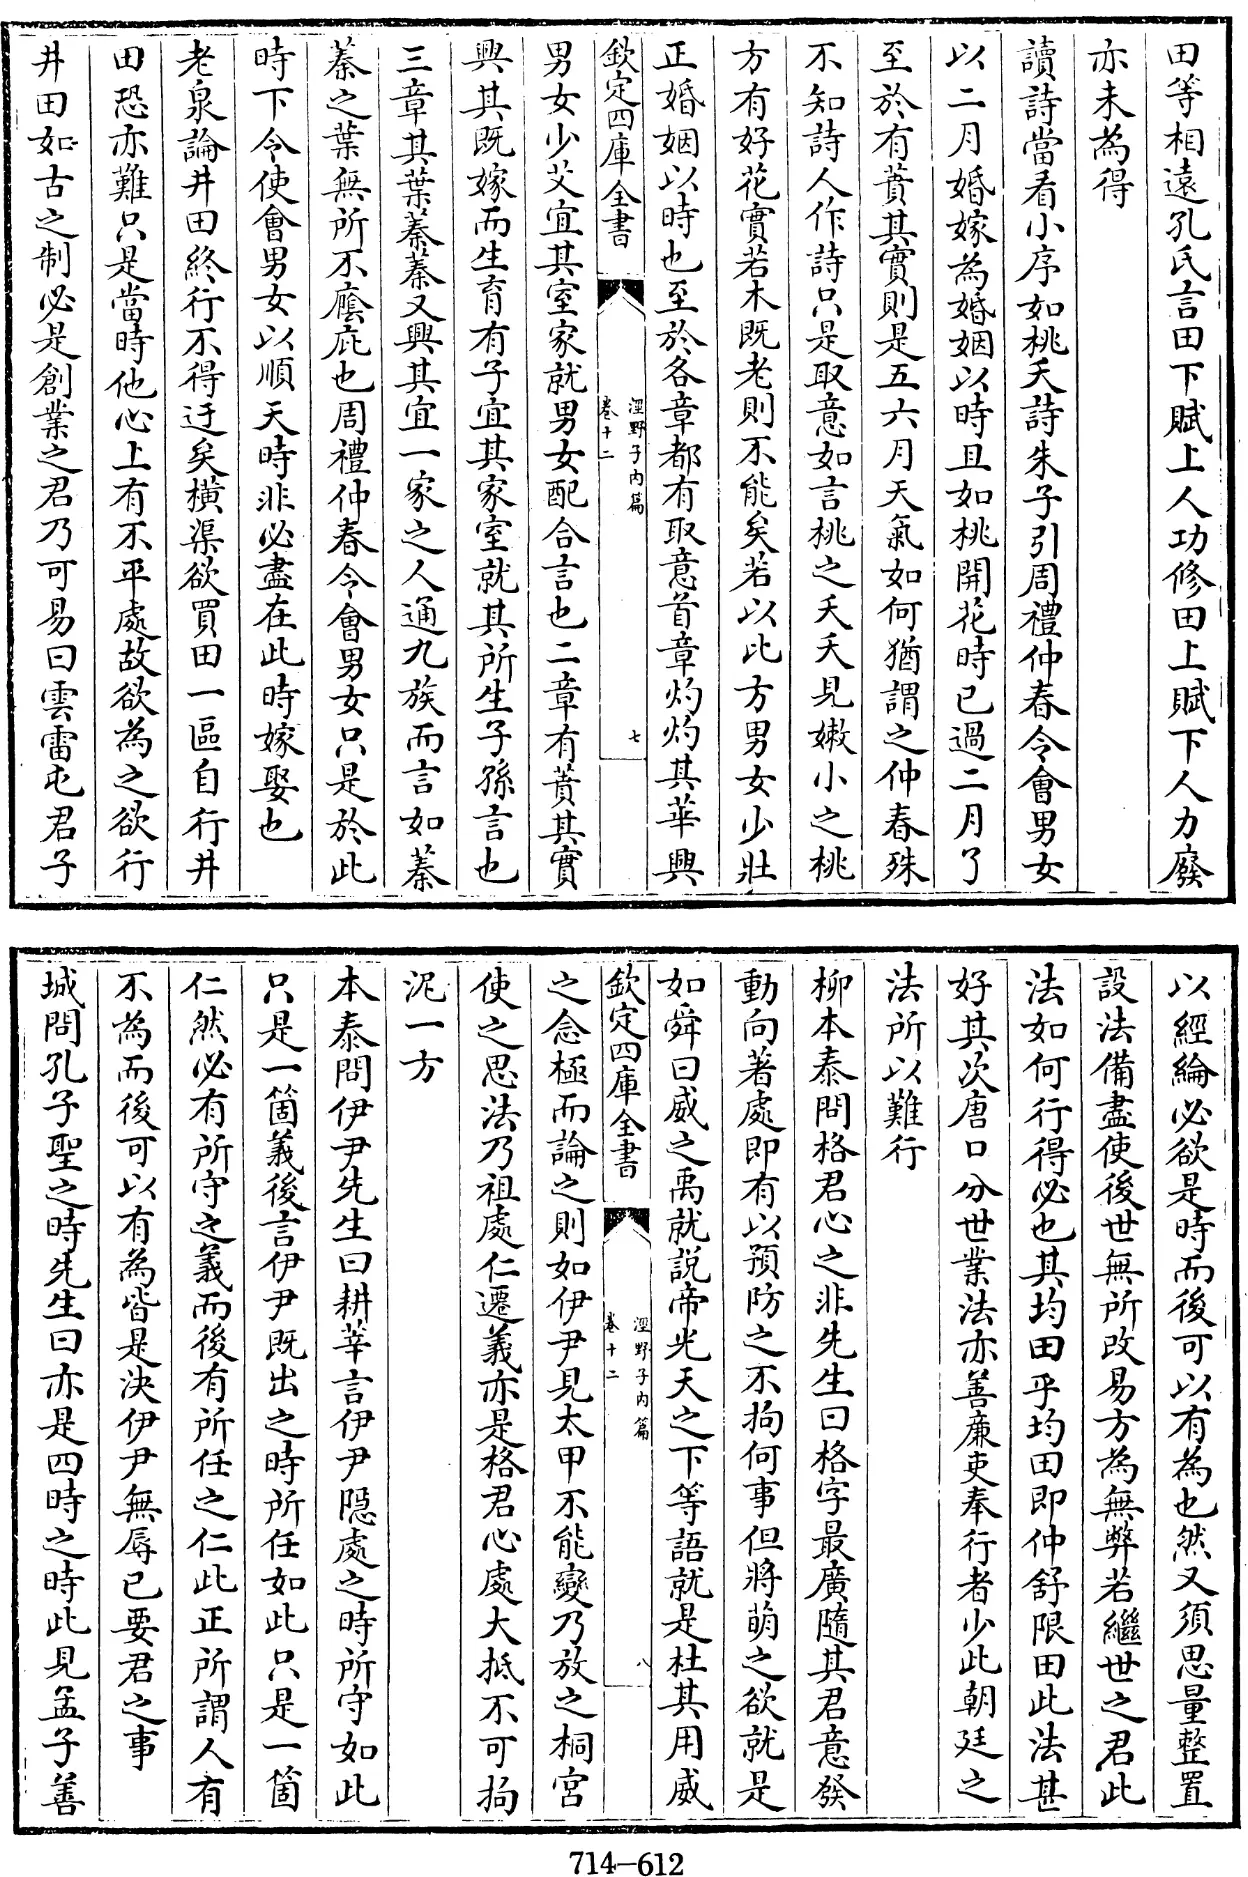 田等相遠孔氏言田下賦上人功修田上賦下人力廢
亦未為得
讀詩當看小序如桃夭詩朱子引周禮仲春令會男女
以二月婚嫁為婚姻以時且如桃開花時已過二月了
至於有蕡其實則是五六月天氣如何猶謂之仲春殊
不知詩人作詩只是取意如言桃之夭夭見嫩小之桃
方有好花實若木既老則不能矣若以此方男女少壯
正婚姻以時也至於各章都有取意首章灼灼其華興
欽定四庫全書
涇野子內篇
卷十二
七
男女少艾宜其室家就男女配合言也二章有蕡其實
興其既嫁而生育有子宜其家室就其所生子孫言也
三章其葉蓁蓁又興其宜一家之人通九族而言如蓁
蓁之葉無所不廕庇也周禮仲春令會男女只是於此
時下令使會男女以順天時非必盡在此時嫁娶也
老泉論井田終行不得迂矣橫渠欲買田一區自行井
田恐亦難只是當時他心上有不平處故欲為之欲行
井田如古之制必是創業之君乃可易曰雲雷屯君子
以經綸必欲是時而後可以有為也然又須思量整置
設法備盡使後世無所改易方為無弊若繼世之君此
法如何行得必也其均田乎均田即仲舒限田此法甚
好其次唐口分世業法亦善廉吏奉行者少此朝廷之
法所以難行
柳本泰問格君心之非先生曰格字最廣隨其君意發
動向著處即有以預防之不拘何事但將萌之欲就是
如舜曰威之禹就說帝光天之下等語就是杜其用威
欽定四庫全書
涇野子內篇
卷十二
八
之念極而論之則如伊尹見太甲不能變乃放之桐宮
使之思法乃祖處仁遷義亦是格君心處大抵不可拘
泥一方
本泰問伊尹先生曰耕莘言伊尹隠處之時所守如此
只是一箇義後言伊尹既出之時所任如此只是一箇
仁然必有所守之義而後有所任之仁此正所謂人有
不為而後可以有為皆是决伊尹無辱已要君之事
城問孔子聖之時先生曰亦是四時之時此見孟子善
714-612